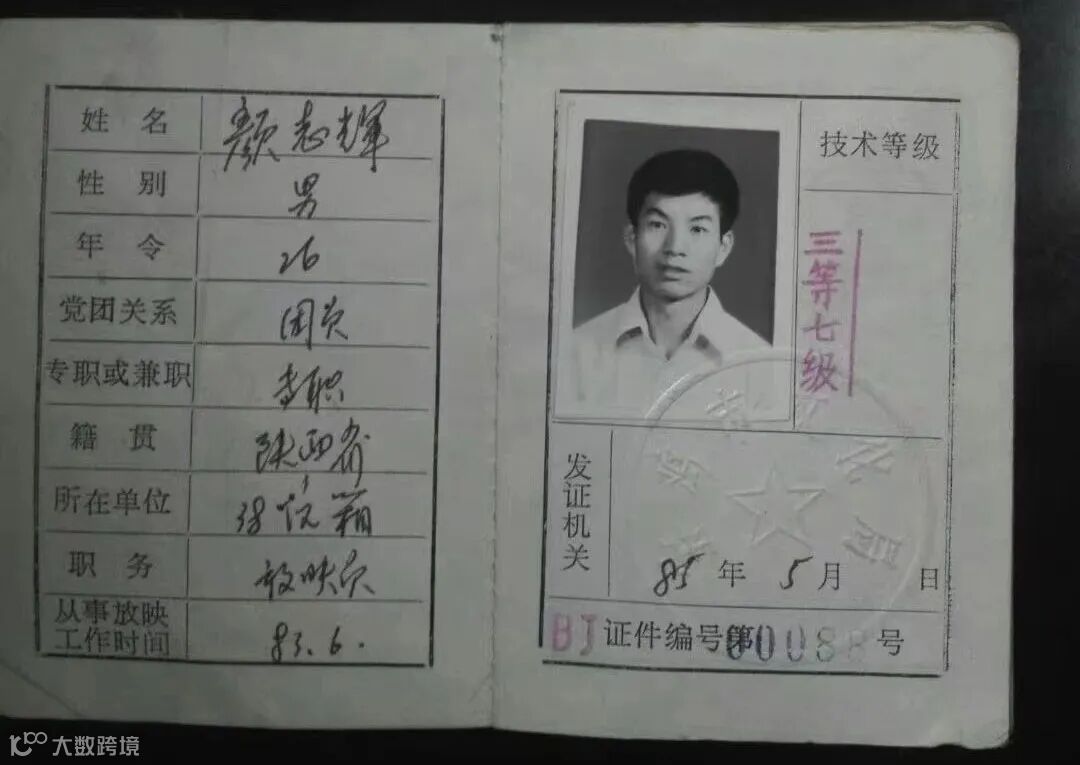 姓 名 颜志辉
性 别 男
年 令 26
党团关系 团员
专职或兼职 专职
籍 贯 陕西
所在单位
职 务 放映员
从事放映
工作时间 83.6.
技术等级
三等七级
发证机关
85年5月 日
BJ证件编号第00088号
大数跨境